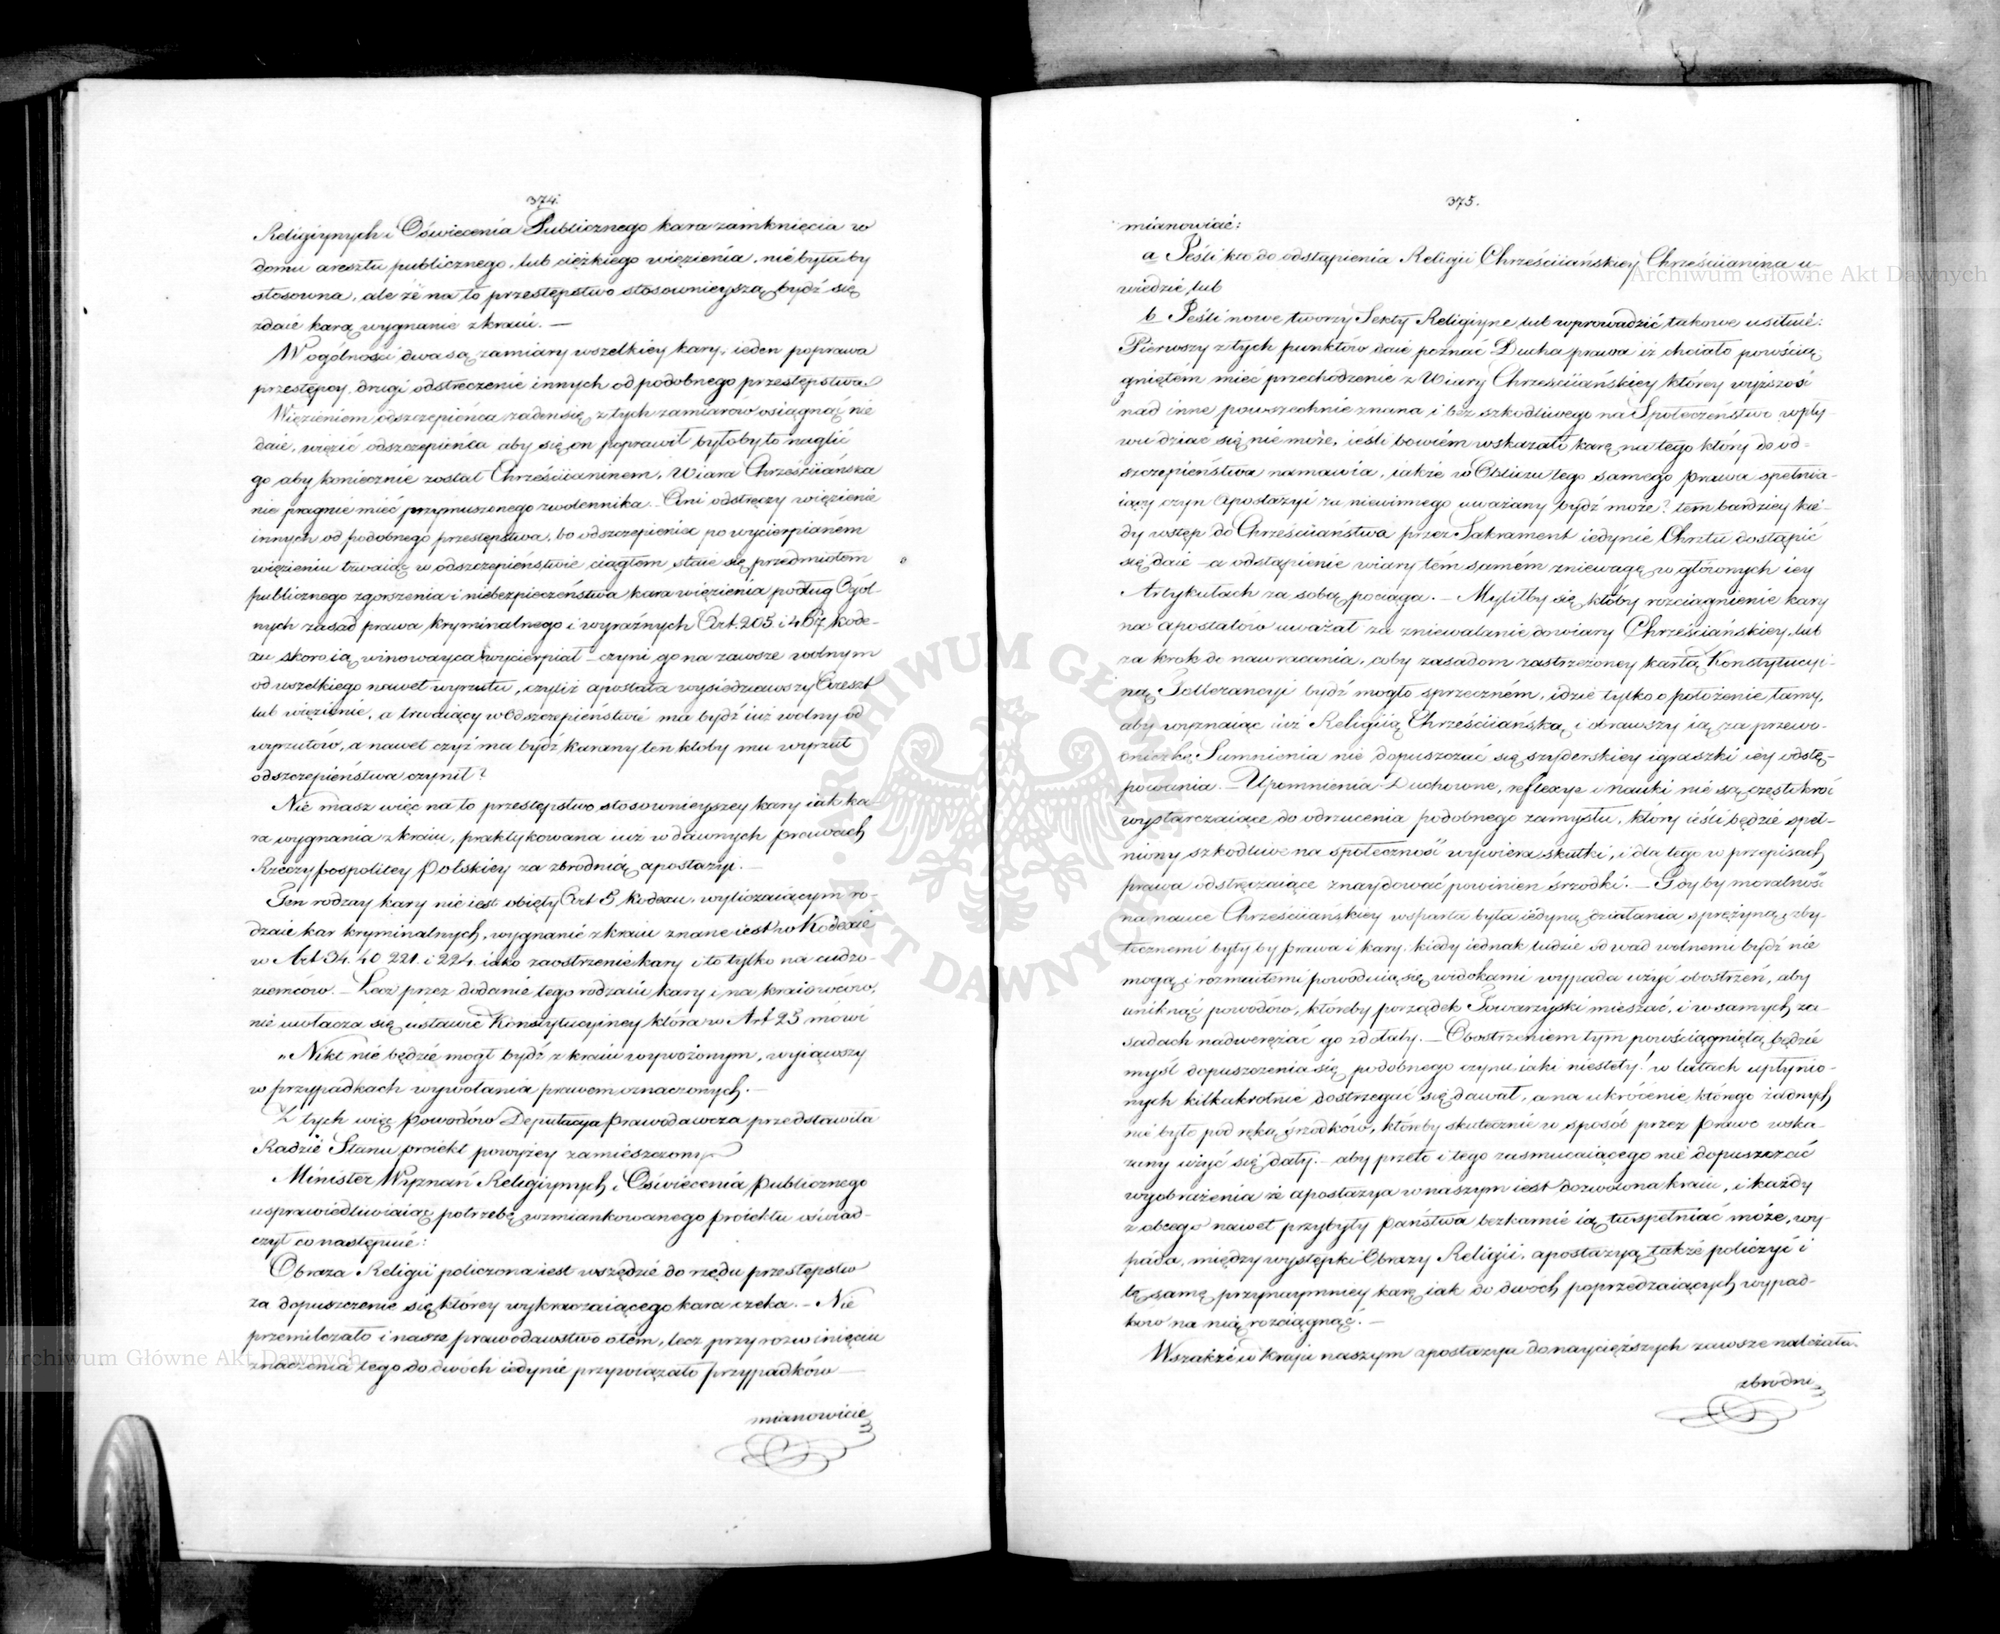 374.
Religiynych i Oświecenia Publicznego kara zamknięcia w
domu aresztu publicznego, lub ciężkiego więzienia, nie byłaby
stosowna, ale że na to przestępstwo stosownieyszą bydź się
zdaie karą wygnanie z kraiu. —
W ogólności dwa są zamiary wszelkiey kary, ieden poprawa
przestępcy, drugi odstręczenie innych od podobnego przestępstwa.
Więzieniem odszczepieńca żaden się z tych zamiarów osiągnąć nie
daie, więzić odszczepieńca aby się on poprawił byłoby to naglić
go aby koniecznie został Chrześciianinem, Wiara Chrześciiańska
nie pragnie mieć przymuszonego zwolennika. Ani odstręczy więzienie
innych od podobnego przestępstwa, bo odszczepieniec po wycierpianem
więzieniu trwaiąc w odszczepieństwie ciągłem staie się przedmiotem
publicznego zgorszenia i niebezpieczeństwa kara więzienia podług Ogól-
nych zasad prawa kryminalnego i wyraźnych Art. 205 i 467 kode-
xu skoro ią winowayca wycierpiał – czyni go na zawsze wolnym
od wszelkiego nawet wyrzutu, czyliż apostata wysiedziawszy Areszt
lub więzienie, a trwaiący w Odszczepieństwie ma bydź iuż wolny od
wyrzutów, a nawet czyż ma bydź karany ten ktoby mu wyrzut
odszczepieństwa czynił?
Nie masz więc na to przestępstwo stosownieyszey kary iak ka-
ra wygnania z kraiu, praktykowana iuż w dawnych prawach
Rzeczypospolitey Polskiey za zbrodnią apostazyi. —
Ten rodzay kary nie iest obięty Art 5 Kodexu, wyliczaiącym ro-
dzaie kar kryminalnych, wygnanie z kraiu znane iest w Kodexie
w Art 34. 40 221. i 224. iako zaostrzenie kary i to tylko na cudzo-
ziemców. – Lecz przez dodanie tego rodzaiu kary i na kraiowców,
nie uwłacza się ustawie Konstytucyiney która w Art 25 mówi
„Nikt nie będzie mógł bydź z kraiu wywożonym, wyiąwszy
w przypadkach wywołania prawem oznaczonych. —
Z tych więc powodów Deputacya Prawodawcza przedstawiła
Radzie Stanu proiekt powyżey zamieszczony
Minister Wyznań Religiynych i Oświecenia Publicznego
usprawiedliwiaiąc potrzebę wzmiankowanego proiektu oświad-
czył co następuie:
Obraza Religii policzona iest wszędzie do rzędu przestępstw
za dopuszczenie się którey wykraczaiącego kara czeka. – Nie
przemilczało i nasze prawodawstwo o tem, lecz przy rozwinięciu
znaczenia tego do dwóch iedynie przywiązało przypadków —
mianowicie
375.
mianowicie:
a Jeśli kto do odstąpienia Religii Chrześciiańskiey Chrześciianina u-
wiedzie, lub
b Jeśli nowe tworzy Sekty Religiyne lub wprowadzić takowe usiłuie:
Pierwszy z tych punktów daie poznać Ducha prawa iż chciało powścią
gniętem mieć przechodzenie z Wiary Chrześciiańskiey którey wyższość
nad inne powszechnie znana i bez szkodliwego na Społeczeństwo wpły-
wu dziać się nie może, ieśli bowiem wskazali karę na tego który do od-
szczepieństwa namawia, iakże w Obliczu tego samego prawa spełnia-
iący czyn Apostazyi za niewinnego uważany bydź może? tem bardziey kie-
dy wstęp do Chrześciiaństwa przez Sakrament iedynie Chrztu dostąpić
się daie – a odstąpienie wiary tém samém zniewagę w głównych iey
Artykułach za sobą pociąga. – Myliłby się ktoby rozciągnienie kary
na apostatów uważał za zniewalanie do wiary Chrześciiańskiey, lub
za krok do nawracania, coby zasadom zastrzeżoney kartą Konstytucyi-
ną Tollerancyi bydź mogło sprzeczném, idzie tylko o położenie tamy,
aby wyznaiąc iuż Religiią Chrześciiańską i obrawszy ią za przewo-
dniczkę Sumnienia nie dopuszczać się szyderskiey igraszki iey odstę-
powania. – Upomnienia Duchowne, reflexye i nauki nie są częstokroć
wystarczaiące do odrzucenia podobnego zamysłu, który ieśli będzie speł-
niony szkodliwe na społeczność wywiera skutki, i dla tego w przepisach
prawa odstręczaiące znaydować powinien śrzodki. – Gdyby moralność
na nauce Chrześciiańskiey wsparta była iedyną działania sprężyną, zby-
tecznemi byłyby prawa i kary, kiedy iednak ludzie od wad wolnemi bydź nie
mogą i rozmaitemi powoduią się widokami wypada użyć obostrzeń, aby
uniknąć powodów, któreby porządek Towarzyski mieszać, i w samych za-
sadach nadwerężać go zdołały. – Obostrzeniem tym powściągnięta będzie
myśl dopuszczenia się podobnego czynu iaki niestety! w latach upłynio-
nych kilkakrotnie dostrzegać się dawał, a na ukrócenie którego żadnych
nie było pod ręką śrzodków, któreby skutecznie w sposób przez prawo wska-
zany użyć się dały. – aby przeto i tego zasmucaiącego nie dopuszczać
wyobrażenia że apostazya w naszym iest dozwolona kraiu, i każdy
z obcego nawet przybyły państwa bezkarnie ią tu spełniać może, wy-
pada, między występki Obrazy Religii, apostazyą także policzyć i
tę samę przynaymniey karę iak do dwóch poprzedzaiących wypad-
ków na nią rozciągnąć. —
Wszakże w Kraju naszym apostazya do naycięższych zawsze należała
zbrodni